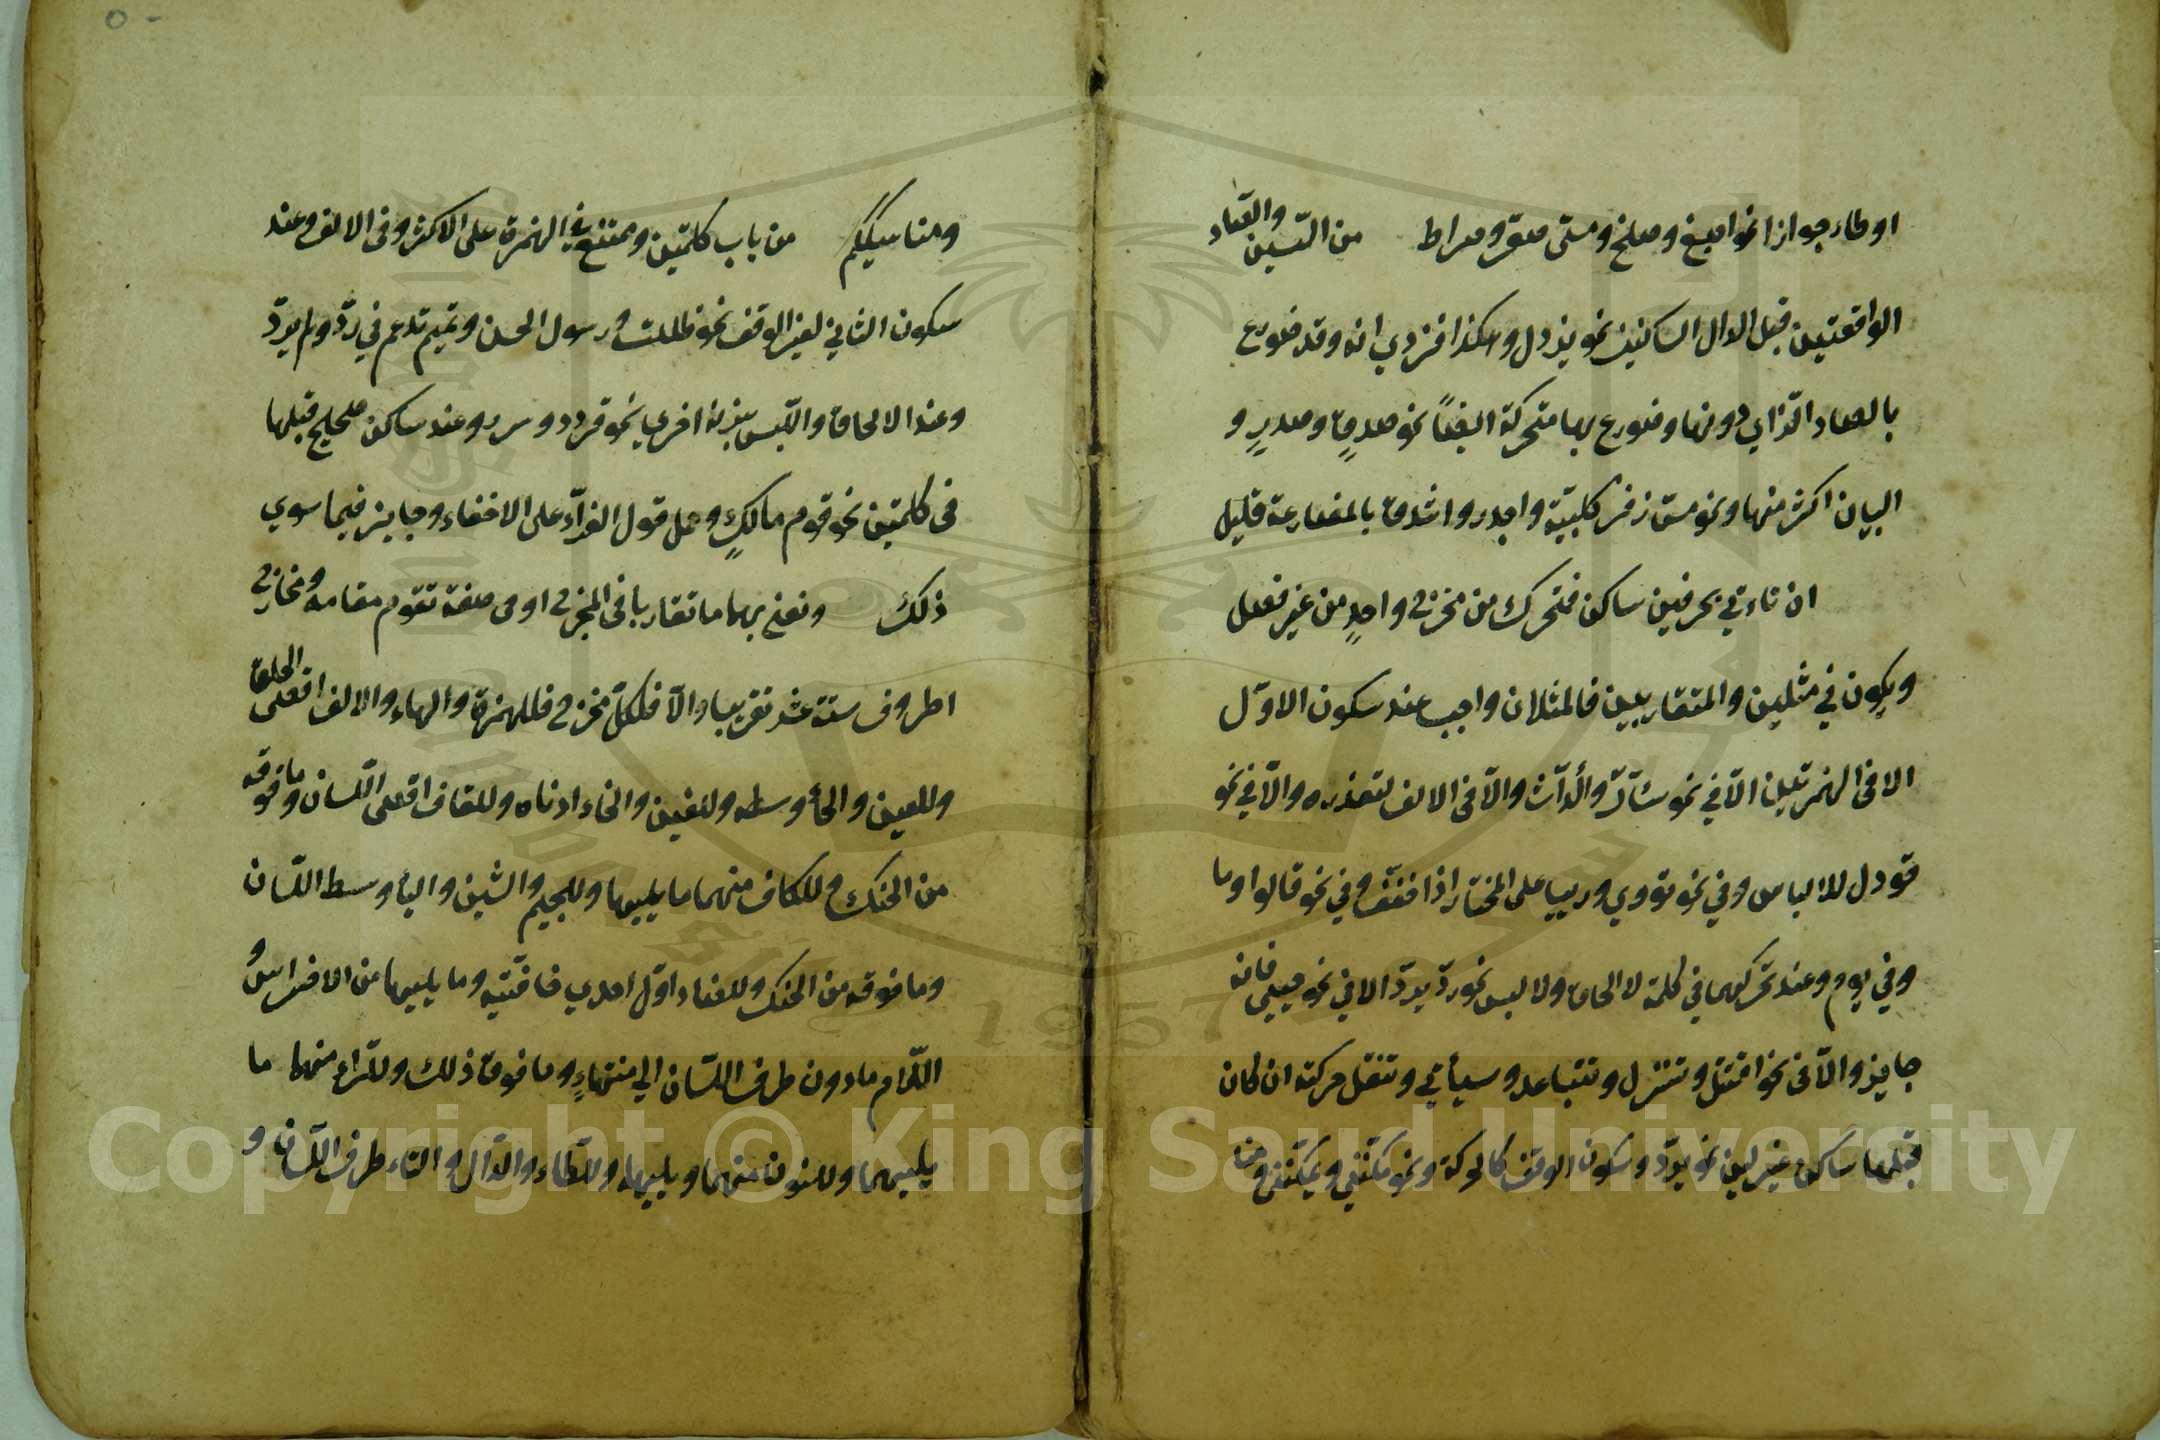 او طاء جوازا نحو اصبغ وصلخ ومسّ صقر وصراط من السّين والصّاد
الواقعتين قبل الدال الساكنين نحو يزدل وهكذا فزدي انه وقد ضورع
بالصاد الزاي دونها وضورع بها متحركة ايضًا نحو صدقٍ وصدرٍ و
البيان اكثر منهما ونحو مسّ زقر كلبيّة واجدر واشدق بالمضارعة قليل
ان تاتي بحرفين ساكن فمتحرك من مخرج واحدٍ من غير فصل
ويكون في مثلين والمتقاربين فالمثلان واجب عند سكون الاوّل
الا في الهمزتين الّا في نحو سَآّل والدأّث والّا في الالف لتعذره والّا في نحو
قوول للالباس وفي نحو تووي وربيا على المختار اذا خففّ وفي نحو قالوا وما
وفي يوم وعند تحركهما في كلمة لا الحاق ولا لبس نحو ردّ يردّ الا في نحو حيي فانه
جايز والّا في نحو اقتتل وتتنزل وتتباعد وسياتي وتنقل حركته ان كان
قبلها ساكن غير لين نحو يردّ وسكون الوقف كالحركة ونحو مكّنني ويمكّنني ومنا
ومناسككم من باب كلمتين وممتنع في الهمزة على الاكثر وفى الالف وعند
سكون الثاني لغير الوقف نحو ظللت ورسول الحسن وتميم تدغم في ردّ ولم يردّ
وعند الالحاق واللّبس بزنة اخرى نحو قردد وسرر وعند ساكن صحيح قبلها
فى كلمتين نحو قوم مالكٍ وحمل قول القرّاء على الاخفاء وجايز فيما سوي
ذلك ونعني بهما ما تقاربا فى المخرج او فى صفة تقوم مقامه ومخارج
الحروف ستة عشر تقريبا والّا فلكلّ مخرج فللهمزة والهاء والالف اقصى الحلق
وللعين والحاء وسطه وللغين والخاء ادناه وللقاف اقصى اللّسان وما فوقه
من الحنك وللكاف منهما ما يليهما وللجيم والشين والياء وسط اللّسان
وما فوقه من الحنك وللضاد اوّل احدي حافّتيه وما يليهما من الاضراس و
اللّام ما دون طرف اللسان الي منتهاهٍ وما فوق ذلك وللرّاء منهما ما
يليهما وللنون منهما ويليهما وللطّاء والدّال والتاء طرف اللّسان و
Copyright © King Saud University
1957